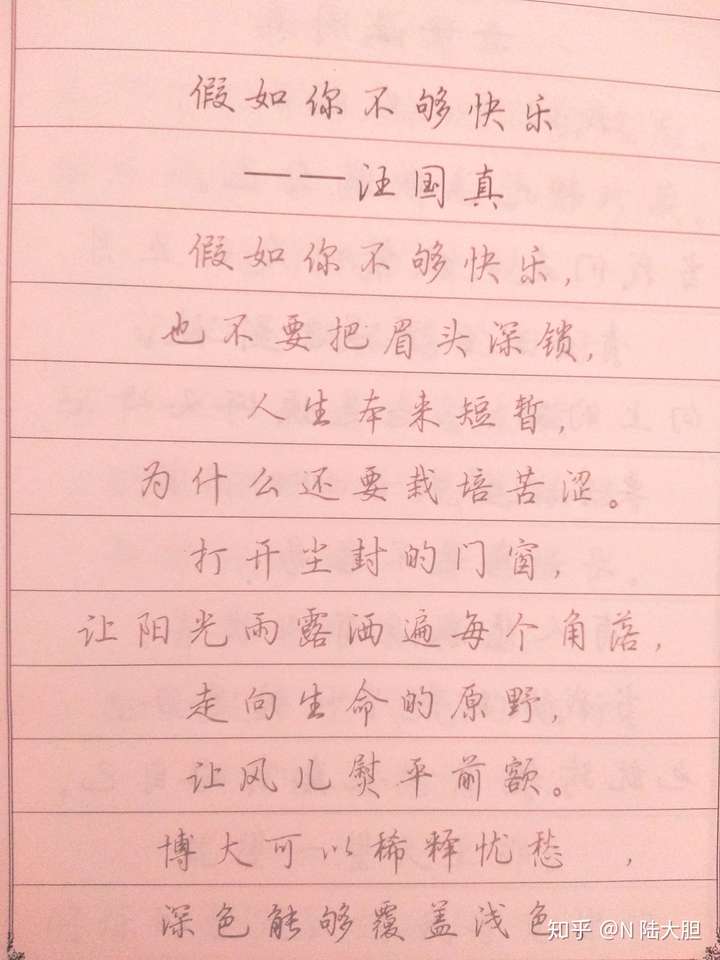 假如你不够快乐
——汪国真
假如你不够快乐，
也不要把眉头深锁，
人生本来短暂，
为什么还要栽培苦涩。
打开尘封的门窗，
让阳光雨露洒遍每个角落，
走向生命的原野，
让风儿熨平前额。
博大可以稀释忧愁，
深色能够覆盖浅色
知乎 @N 陆大胆